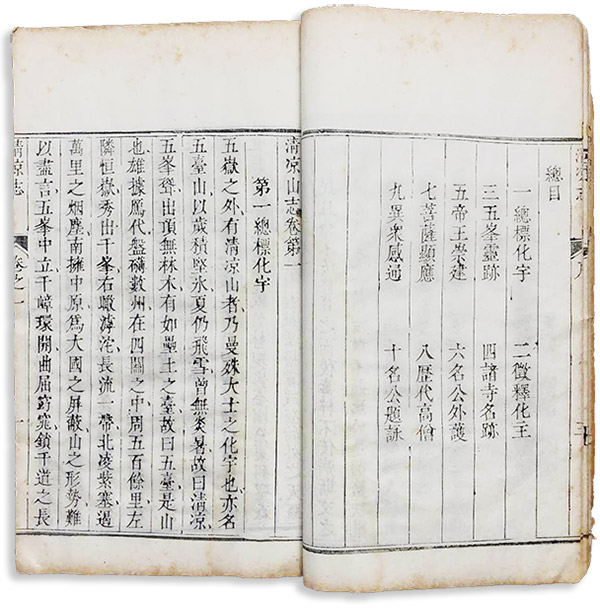 總目
一總標化宇 二徵釋化主
三五峯靈跡 四諸寺名跡
五帝王崇建 六名公外護
七菩薩顯應 八歷代高僧
九異衆感通 十名公題詠
清涼山志卷第一
第一總標化宇
五嶽之外有清凉山者乃曼殊大士之化宇也亦名
五臺山以歲積堅氷夏仍飛雪曾無炎暑故曰清凉
五峯聳出頂無林木有如壘土之臺故曰五臺是山
也雄據鴈代盤礴數州在四關之中周五百餘里左
隣恒嶽秀出千峯右瞰滹沱長流一帶北凌紫塞遏
萬里之烟塵南擁中原爲大國之屏蔽山之形勢難
以盡言五峯中立千嶂環開曲屈窈窕鎖千道之長
清凉志 卷之一 一